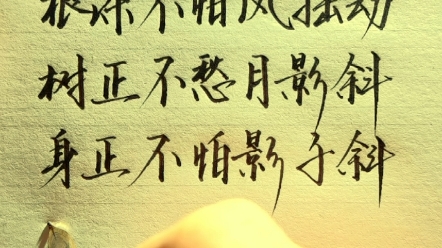 根深不怕风摇动
树正不愁月影斜
身正不怕影子斜